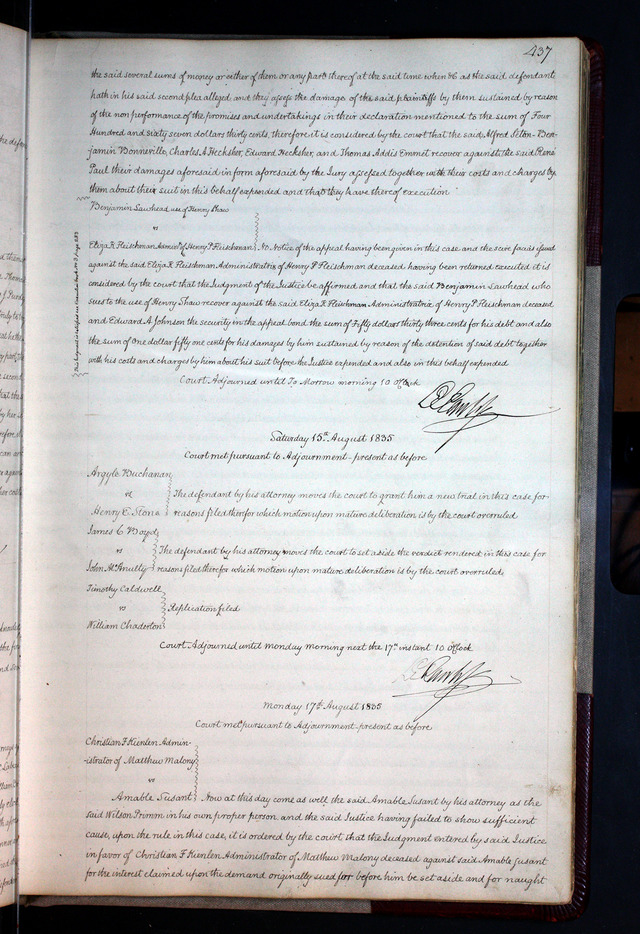 437
the said several sums of money or either of them or any part thereof at the said time when &c as the said defendant
hath in his said second plea alleged and they assess the damage of the said plaintiffs by them sustained by reason
of the non performance of the promises and undertakings in their declaration mentioned to the sum of Four
Hundred and sixty seven dollars thirty cents, therefore it is considered by the court that the said Alfred Seton Ben-
jamin Bonneville, Charles A Hecksher, Edward Hecksher, and Thomas Addis Emmet recover against the said René
Paul their damages aforesaid in form aforesaid by the Jury assessed together with their costs and charges by
them about their suit in this behalf expended and that they have thereof execution
Benjamin Lawhead use of Henry Shaw
vs
Eliza R Fleischman Admin of Henry P Fleischman No Notice of the appeal having been given in this case and the scire facias issued
against the said Eliza R Fleischman Administratrix of Henry P Fleischman deceased having been returned executed it is
considered by the court that the Judgment of the Justice be affirmed and that the said Benjamin Lawhead who
sues to the use of Henry Shaw recover against the said Eliza R Fleischman Administratrix of Henry P Fleischman deceased
and Edward A Johnson the security in the appeal bond the sum of Fifty dollars thirty three cents for his debt and also
the sum of One dollar fifty one cents for his damages by him sustained by reason of the detention of said debt together
with his costs and charges by him about his suit before the Justice expended and also in this behalf expended
Court Adjourned until To Morrow morning 10 oClock
Saturday 15th August 1835
Court met pursuant to Adjournment present as before
Argyle Buchanan
vs The defendant by his attorney moves the court to grant him a new trial in this case for
Henry E. Stone reasons filed therefor which motion upon mature deliberation is by the court overruled
James C Boyd
vs The defendant by his attorney moves the court to set aside the verdict rendered in this case for
John McAnully reasons filed therefor which motion upon mature deliberation is by the court overruled
Timothy Caldwell
vs Replication filed
William Chaderton
Court Adjourned until monday morning next the 17th instant 10 oClock
Monday 17th August 1835
Court met pursuant to Adjournment present as before
Christian F Kienlen Admin-
-istrator of Matthew Malony
vs
Amable Susant Now at this day come as well the said Amable Susant by his attorney as the
said Wilson Primm in his own proper person, and the said Justice having failed to show sufficient
cause, upon the rule in this case, it is ordered by the court that the Judgment entered by said Justice
in favor of Christian F Kienlen Administrator of Matthew Malony deceased against said Amable Susant
for the interest claimed upon the demand originally sued for before him be set aside and for naught